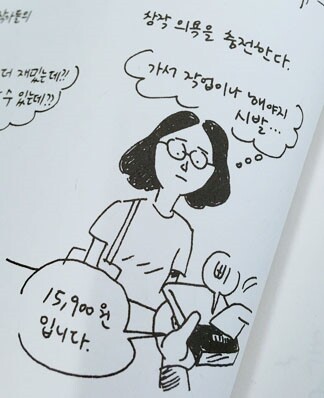 창작 의욕을 충전한다.
더 재밌는데?!
수 있는데??
가서 작업이나 해야지
시발...
삐
15,900원
입니다.